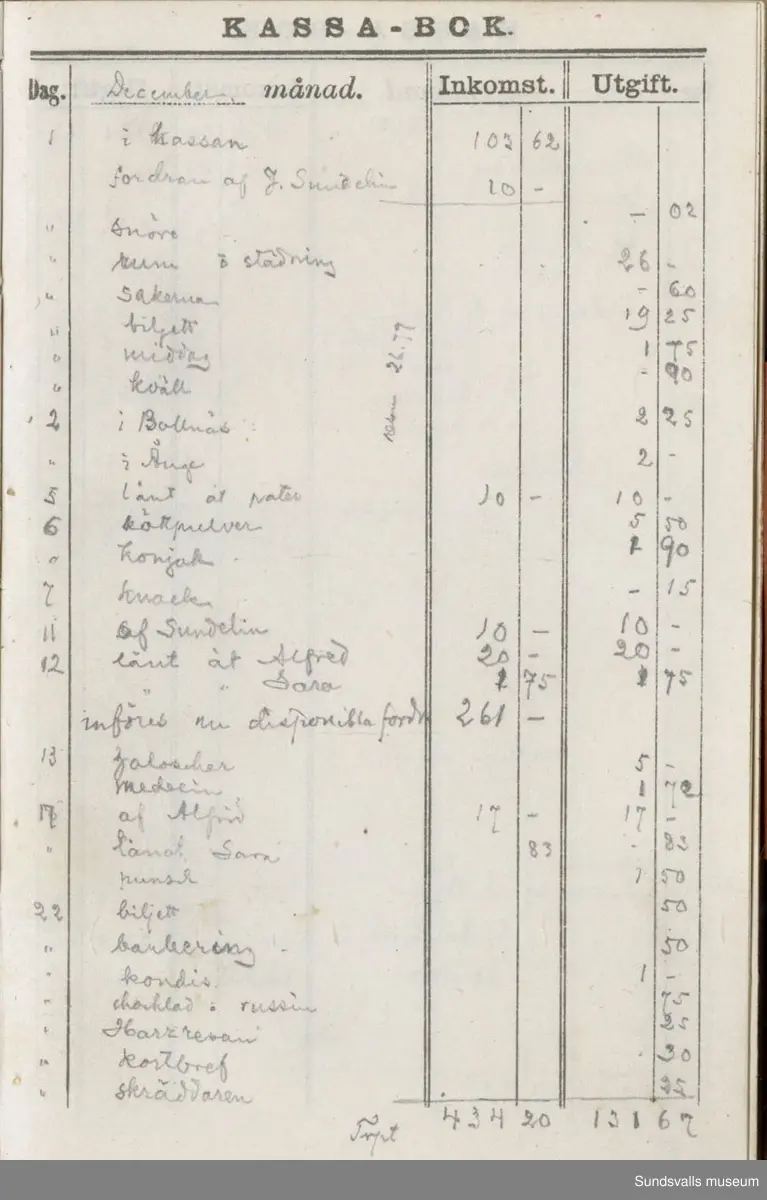 KASSA-BOK.
Dag. December månad. Inkomst. Utgift.
1 i Kassan 103 62
fordran af J. Sundelin 10 -
" snöre - 02
" rum o städning 26 -
" sakerna - 60
" biljett 19 25
" middag 1 75
" kväll - 90
26.77
2 i Bollnäs 2 25
" i Ånge 2 -
5 lånt åt pater 10 - 10 -
6 köttpulver 5 50
" Konjak 1 90
7 knäck - 15
11 af Sundelin 10 - 10 -
12 lånt åt Alfred 20 - 20 -
" " Sara 1 75 1 75
införes nu disponibla fordr 261 -
13 galoscher 5 -
medecin 1 72
af Alfrid 17 - 17 -
" lånat Sara 83 - 83
punsch 1 50
22 biljett 50
" barbering 50
" kondis 1 -
" choklad o russin 75
" Harzrevan 25
" kortbref 30
" skräddaren 25
Trpt 434 20 131 67
Sundsvalls museum